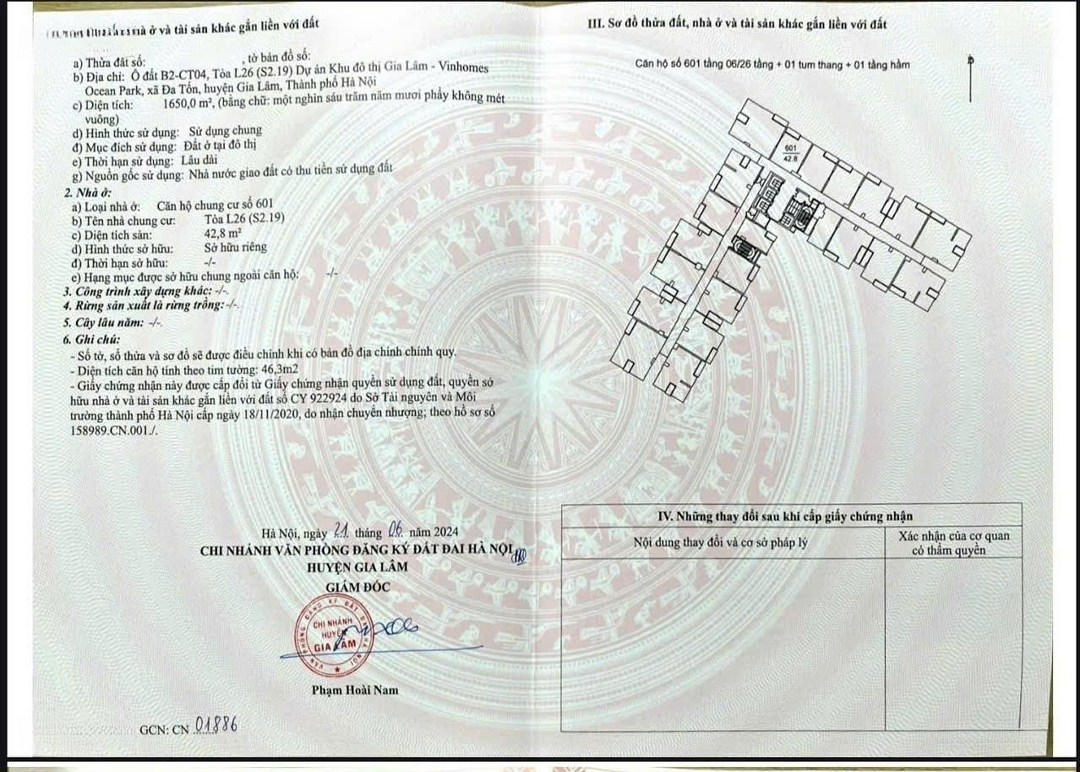 nhà ở và tài sản khác gắn liền với đất
a) Thửa đất số: , tờ bản đồ số:
b) Địa chỉ: Ô đất B2-CT04, Tòa L26 (S2.19) Dự án Khu đô thị Gia Lâm - Vinhomes
Ocean Park, xã Đa Tốn, huyện Gia Lâm, Thành phố Hà Nội
c) Diện tích: 1650,0 m², (bằng chữ: một nghìn sáu trăm năm mươi phẩy không mét
vuông)
d) Hình thức sử dụng: Sử dụng chung
đ) Mục đích sử dụng: Đất ở tại đô thị
e) Thời hạn sử dụng: Lâu dài
g) Nguồn gốc sử dụng: Nhà nước giao đất có thu tiền sử dụng đất
2. Nhà ở:
a) Loại nhà ở: Căn hộ chung cư số 601
b) Tên nhà chung cư: Tòa L26 (S2.19)
c) Diện tích sàn: 42,8 m²
d) Hình thức sở hữu: Sở hữu riêng
đ) Thời hạn sở hữu: -/-
e) Hạng mục được sở hữu chung ngoài căn hộ: -/-
3. Công trình xây dựng khác: -/-.
4. Rừng sản xuất là rừng trồng:-/-.
5. Cây lâu năm: -/-.
6. Ghi chú:
- Số tờ, số thửa và sơ đồ sẽ được điều chỉnh khi có bản đồ địa chính chính quy.
- Diện tích căn hộ tính theo tim tường: 46,3m2
- Giấy chứng nhận này được cấp đổi từ Giấy chứng nhận quyền sử dụng đất, quyền sở
hữu nhà ở và tài sản khác gắn liền với đất số CY 922924 do Sở Tài nguyên và Môi
trường thành phố Hà Nội cấp ngày 18/11/2020, do nhận chuyển nhượng; theo hồ sơ số
158989.CN.001./.
Hà Nội, ngày 21 tháng 06 năm 2024
CHI NHÁNH VĂN PHÒNG ĐĂNG KÝ ĐẤT ĐAI HÀ NỘI
HUYỆN GIA LÂM
GIÁM ĐỐC
VĂN PHÒNG ĐĂNG KÝ ĐẤT ĐAI HÀ NỘI
CHI NHÁNH
HUYỆN
GIA LÂM
Phạm Hoài Nam
GCN: CN 01886
III. Sơ đồ thửa đất, nhà ở và tài sản khác gắn liền với đất
Căn hộ số 601 tầng 06/26 tầng + 01 tum thang + 01 tầng hầm
601
42.8
IV. Những thay đổi sau khi cấp giấy chứng nhận
Nội dung thay đổi và cơ sở pháp lý
Xác nhận của cơ quan
có thẩm quyền